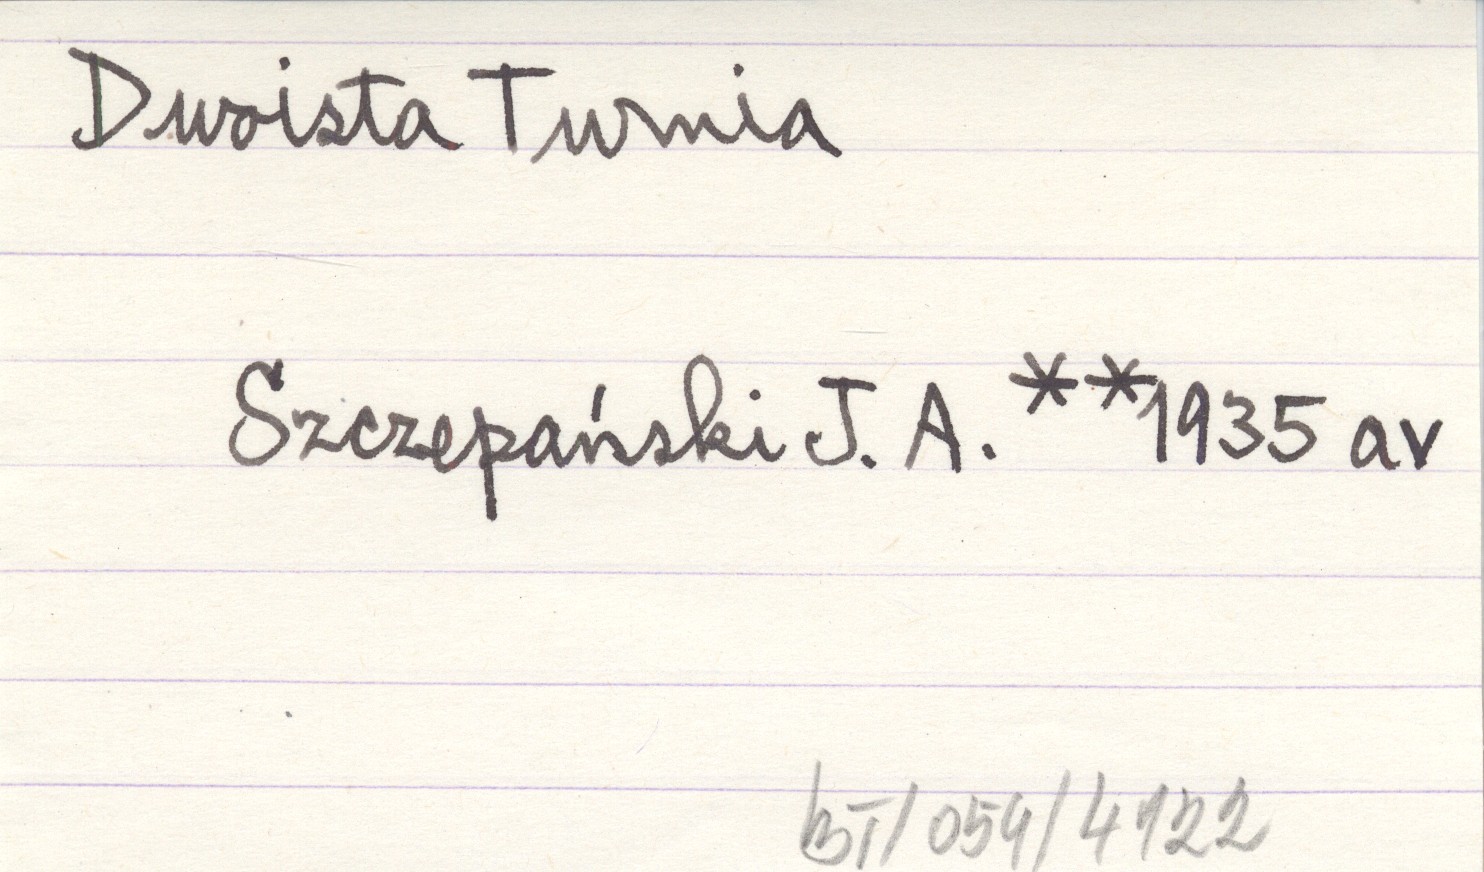 Dwoista Turnia
Szczepański J. A. **1935 av
BT/059/4122